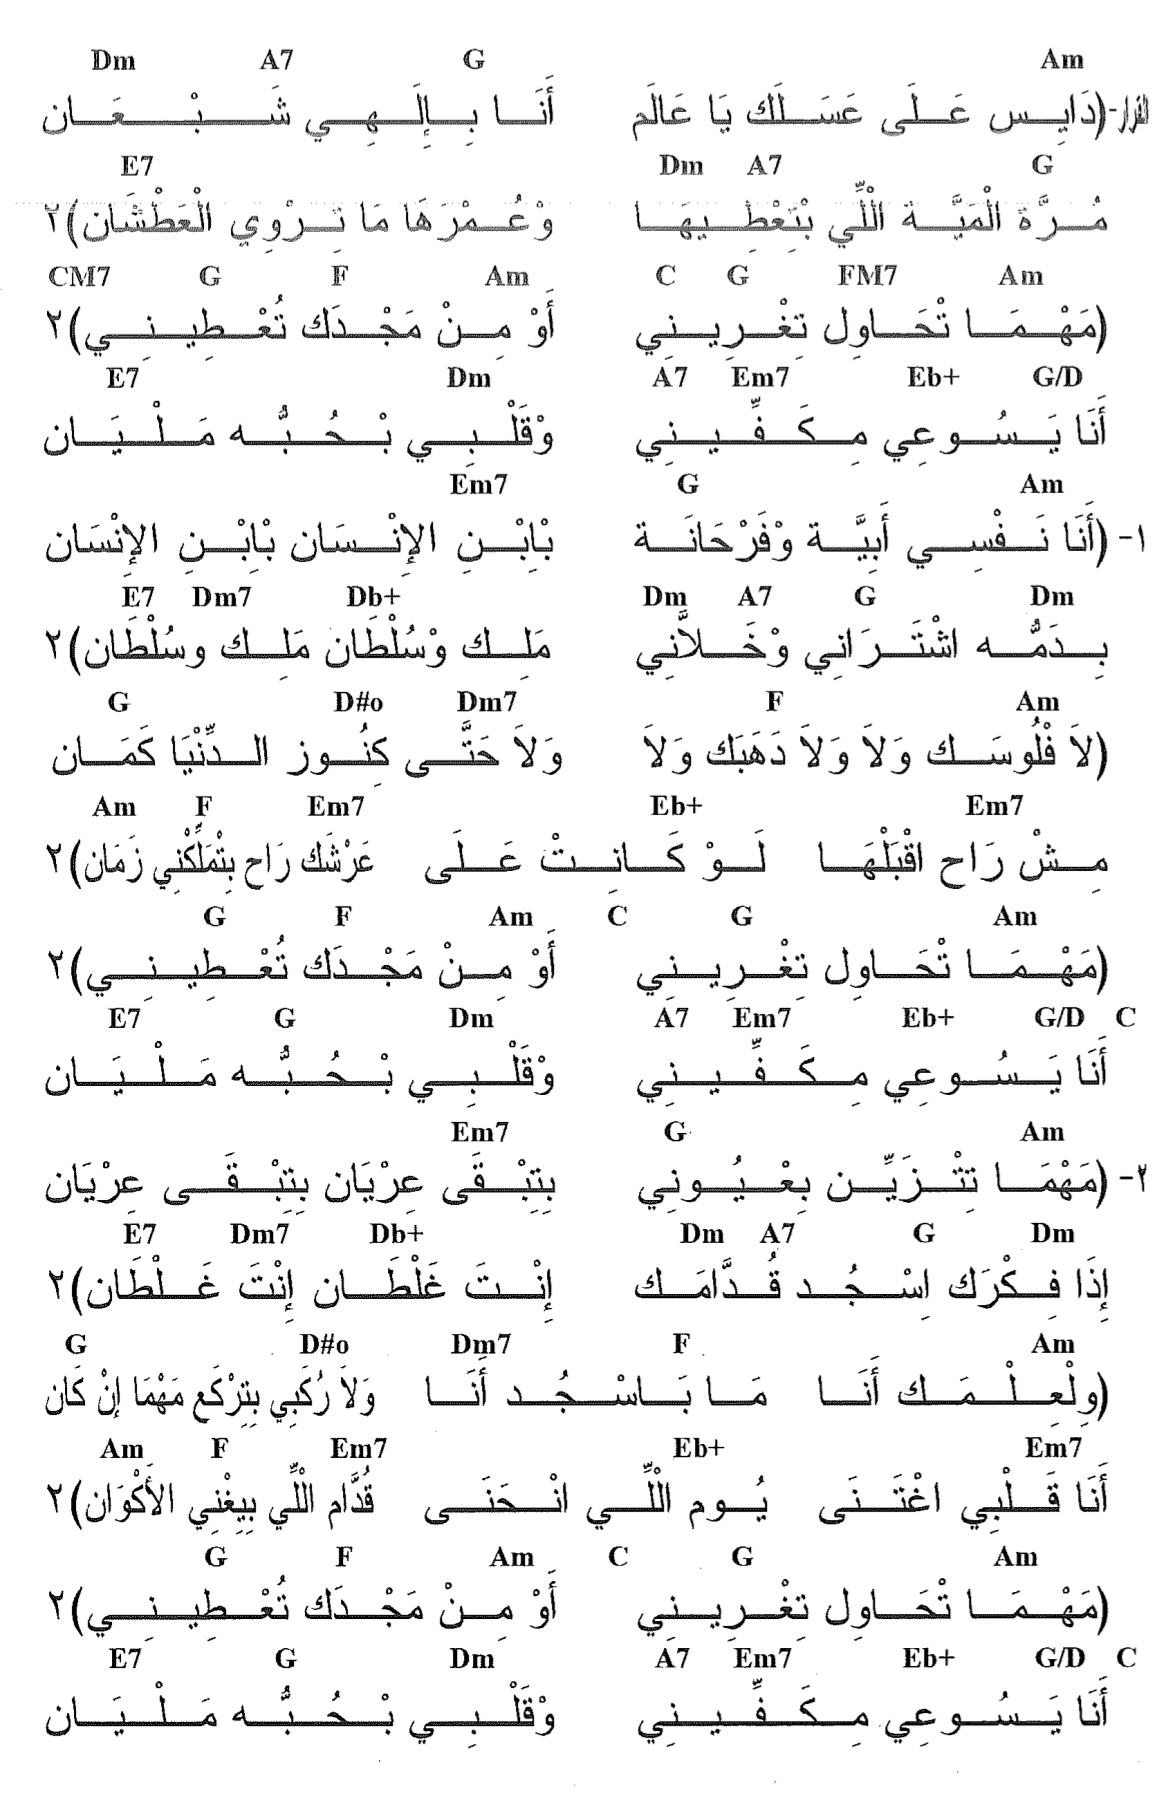 Dm A7 G Am
القرار-(دَايِس عَلَى عَسَلَك يَا عَالَم أَنَا بِإِلَهِي شَبْعَان
E7 Dm A7 G
مُرَّة الْمَيَّة اللِّي بْتِعْطِيهَا وْعُمْرَهَا مَا تِرْوِي الْعَطْشَان)٢
CM7 G F Am C G FM7 Am
(مَهْمَا تْحَاوِل تِغْرِينِي أَوْ مِنْ مَجْدَك تُعْطِينِي)٢
E7 Dm A7 Em7 Eb+ G/D
أَنَا يَسُوعِي مِكَفِّينِي وْقَلْبِي بْحُبُّه مَلْيَان
Em7 G Am
١- (أَنَا نَفْسِي أَبِيَّة وْفَرْحَانَة بْاِبْنِ الإِنْسَان بْاِبْنِ الإِنْسَان
E7 Dm7 Db+ Dm A7 G Dm
بِدَمُّه اشْتَرَانِي وْخَلاَّنِي مَلِك وْسُلْطَان مَلِك وسُلْطَان)٢
G D#o Dm7 F Am
(لاَ فْلُوسَك وَلاَ وَلاَ دَهَبَك وَلاَ وَلاَ حَتَّى كِنُوز الدِّنْيَا كَمَان
Am F Em7 Eb+ Em7
مِشْ رَاح اقْبَلْهَا لَوْ كَانِتْ عَلَى عَرْشَك رَاح بِتْمَلِّكْنِي زَمَان)٢
G F Am C G Am
(مَهْمَا تْحَاوِل تِغْرِينِي أَوْ مِنْ مَجْدَك تُعْطِينِي)٢
E7 G Dm A7 Em7 Eb+ G/D C
أَنَا يَسُوعِي مِكَفِّينِي وْقَلْبِي بْحُبُّه مَلْيَان
Em7 G Am
٢- (مَهْمَا تِتْزَيِّن بِعْيُونِي بِتِبْقَى عِرْيَان بِتِبْقَى عِرْيَان
E7 Dm7 Db+ Dm A7 G Dm
إِذَا فِكْرَك اِسْجُد قُدَّامَك إِنْتَ غَلْطَان إِنْتَ غَلْطَان)٢
G D#o Dm7 F Am
(ولْعِلْمَك أَنَا مَا بَاسْجُد أَنَا وَلاَ رُكَبِي بِتِرْكَع مَهْمَا إِنْ كَان
Am F Em7 Eb+ Em7
أَنَا قَلْبِي اغْتَنَى يُوم اللِّي انْحَنَى قُدَّام اللِّي بِيِغْنِي الأَكْوَان)٢
G F Am C G Am
(مَهْمَا تْحَاوِل تِغْرِينِي أَوْ مِنْ مَجْدَك تُعْطِينِي)٢
E7 G Dm A7 Em7 Eb+ G/D C
أَنَا يَسُوعِي مِكَفِّينِي وْقَلْبِي بْحُبُّه مَلْيَان